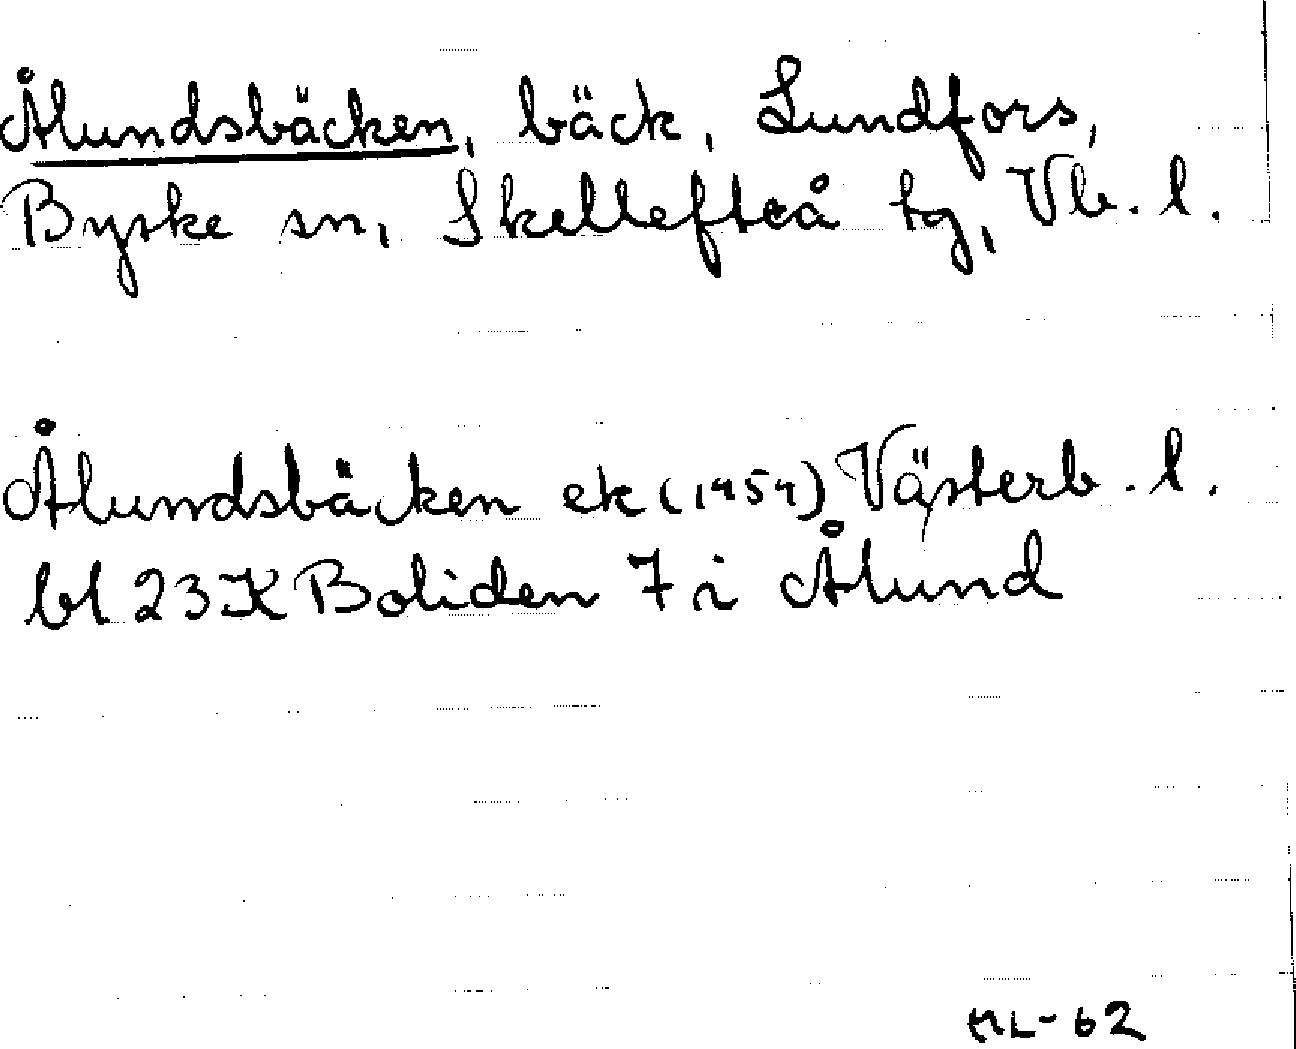 Ålundsbäcken, bäck, Lundfors,
Byske sn, Skellefteå tg, Vb. l.
Ålundsbäcken ek (1959) Västerb. l.
bl 23K Boliden 7 i Ålund
ML-62